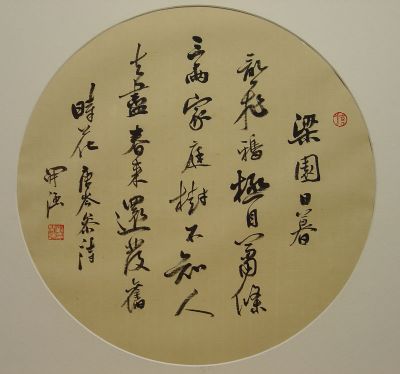 梁園日暮
亂飛鴉極目蕭條
三兩家庭樹不知人
去盡春來還發舊
時花 唐岑參詩